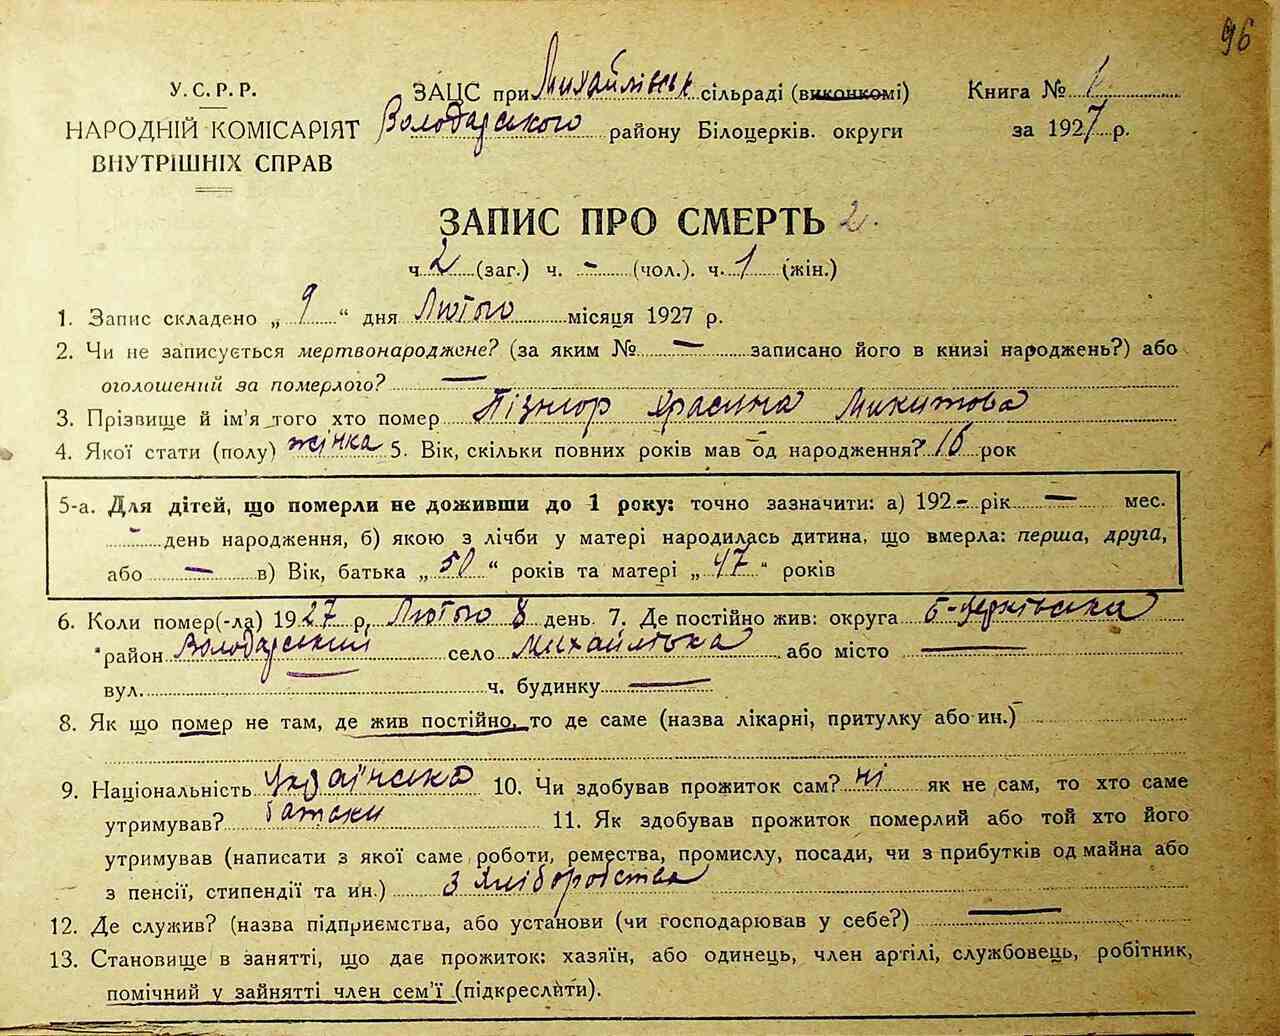 96
У.С.Р.Р.
НАРОДНІЙ КОМІСАРІЯТ
ВНУТРІШНІХ СПРАВ
ЗАЦС при Михайлівськ сільраді (виконкомі)
Володарського району Білоцерків. округи
Книга №
за 1927 р.
ЗАПИС ПРО СМЕРТЬ 2.
ч 2 (заг.) ч. - (чол.). ч. 1 (жін.)
1. Запис складено „ 9 “ дня Лютого місяця 1927 р.
2. Чи не записується мертвонароджене? (за яким № — записано його в книзі народжень?) або
оголошений за померлого? —
3. Прізвище й ім'я того хто помер Микитова
4. Якої стати (полу) жінка 5. Вік, скільки повних років мав од народження? 16 рок
5-а. Для дітей, що померли не доживши до 1 року: точно зазначити: а) 192- рік — мес.
- день народження, б) якою з лічби у матері народилась дитина, що вмерла: перша, друга,
або — в) Вік, батька „ 50 “ років та матері „ 47 “ років
6. Коли помер(-ла) 1927 р. Лютого 8 день 7. Де постійно жив: округа Б-Церківська
район Володарський село Михайлівка або місто —
вул. ч. будинку —
8. Як що помер не там, де жив постійно, то де саме (назва лікарні, притулку або ин.)
9. Національність Українська 10. Чи здобував прожиток сам? ні як не сам, то хто саме
утримував? батьки 11. Як здобував прожиток померлий або той хто його
утримував (написати з якої саме роботи, ремества, промислу, посади, чи з прибутків од майна або
з пенсії, стипендії та ин.) З Хліборобства
12. Де служив? (назва підприємства, або установи (чи господарював у себе?) —
13. Становище в занятті, що дає прожиток: хазяїн, або одинець, член артілі, службовець, робітник,
помічний у зайнятті член сем'ї (підкреслити).